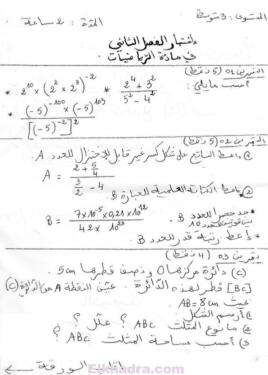 المستوى: 3 متوسط المدة: 2 ساعة
إختبار الفصل الثاني
في مادة الرياضيات
التمرين 01 (5 نقط)
أحسب مايلي:
* 2^10 × (2^2 × 2^3)^-2 * (2^4 + 3^2) / (5^2 - 4^2)
* ((-5)^-100 × (-5)^103) / [(-5)^-2]^2
التمرين 02 (5 نقط)
① اعط الناتج على شكل كسر غير قابل للإختزال للعدد A.
A = (2 + 5/4) / (3/2 - 4)
② اعط الكتابة العلمية للعبارة B
B = (7×10^-5 × 0,21×10^12) / (42 × 10^23)
جد حصر العدد B.
إعط رتبة قدر للعدد B
تمرين 03 (4 نقط)
(C) دائرة مركزها O ونصف قطرها 5cm
[BC] قطر لهذه الدائرة. عين النقطة A من الدائرة (C)
حيث AB = 8cm
أرسم الشكل
ما نوع المثلث ABC؟ علل؟
أحسب مساحة المثلث ABC؟
الورقة
Elkhadra.com